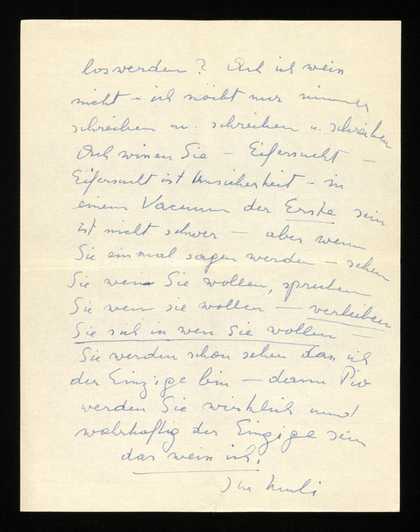 loswerden? Ach ich weiss
nicht – ich möcht nur immer
schreiben u. schreiben u. schreiben
Ach wissen Sie – Eifersucht –
Eifersucht ist Unsicherheit – in
einem Vacuum der Erste sein
ist nicht schwer – aber wenn
Sie einmal sagen werden – sehen
Sie wen Sie wollen, sprechen
Sie wen sie wollen – verlieben
Sie sich in wen Sie wollen –
Sie werden schon sehen dass ich
der Einzige bin – dann
werden Sie wirklich und
wahrhaftig der Einzige sein
das weiss ich!
Ihr